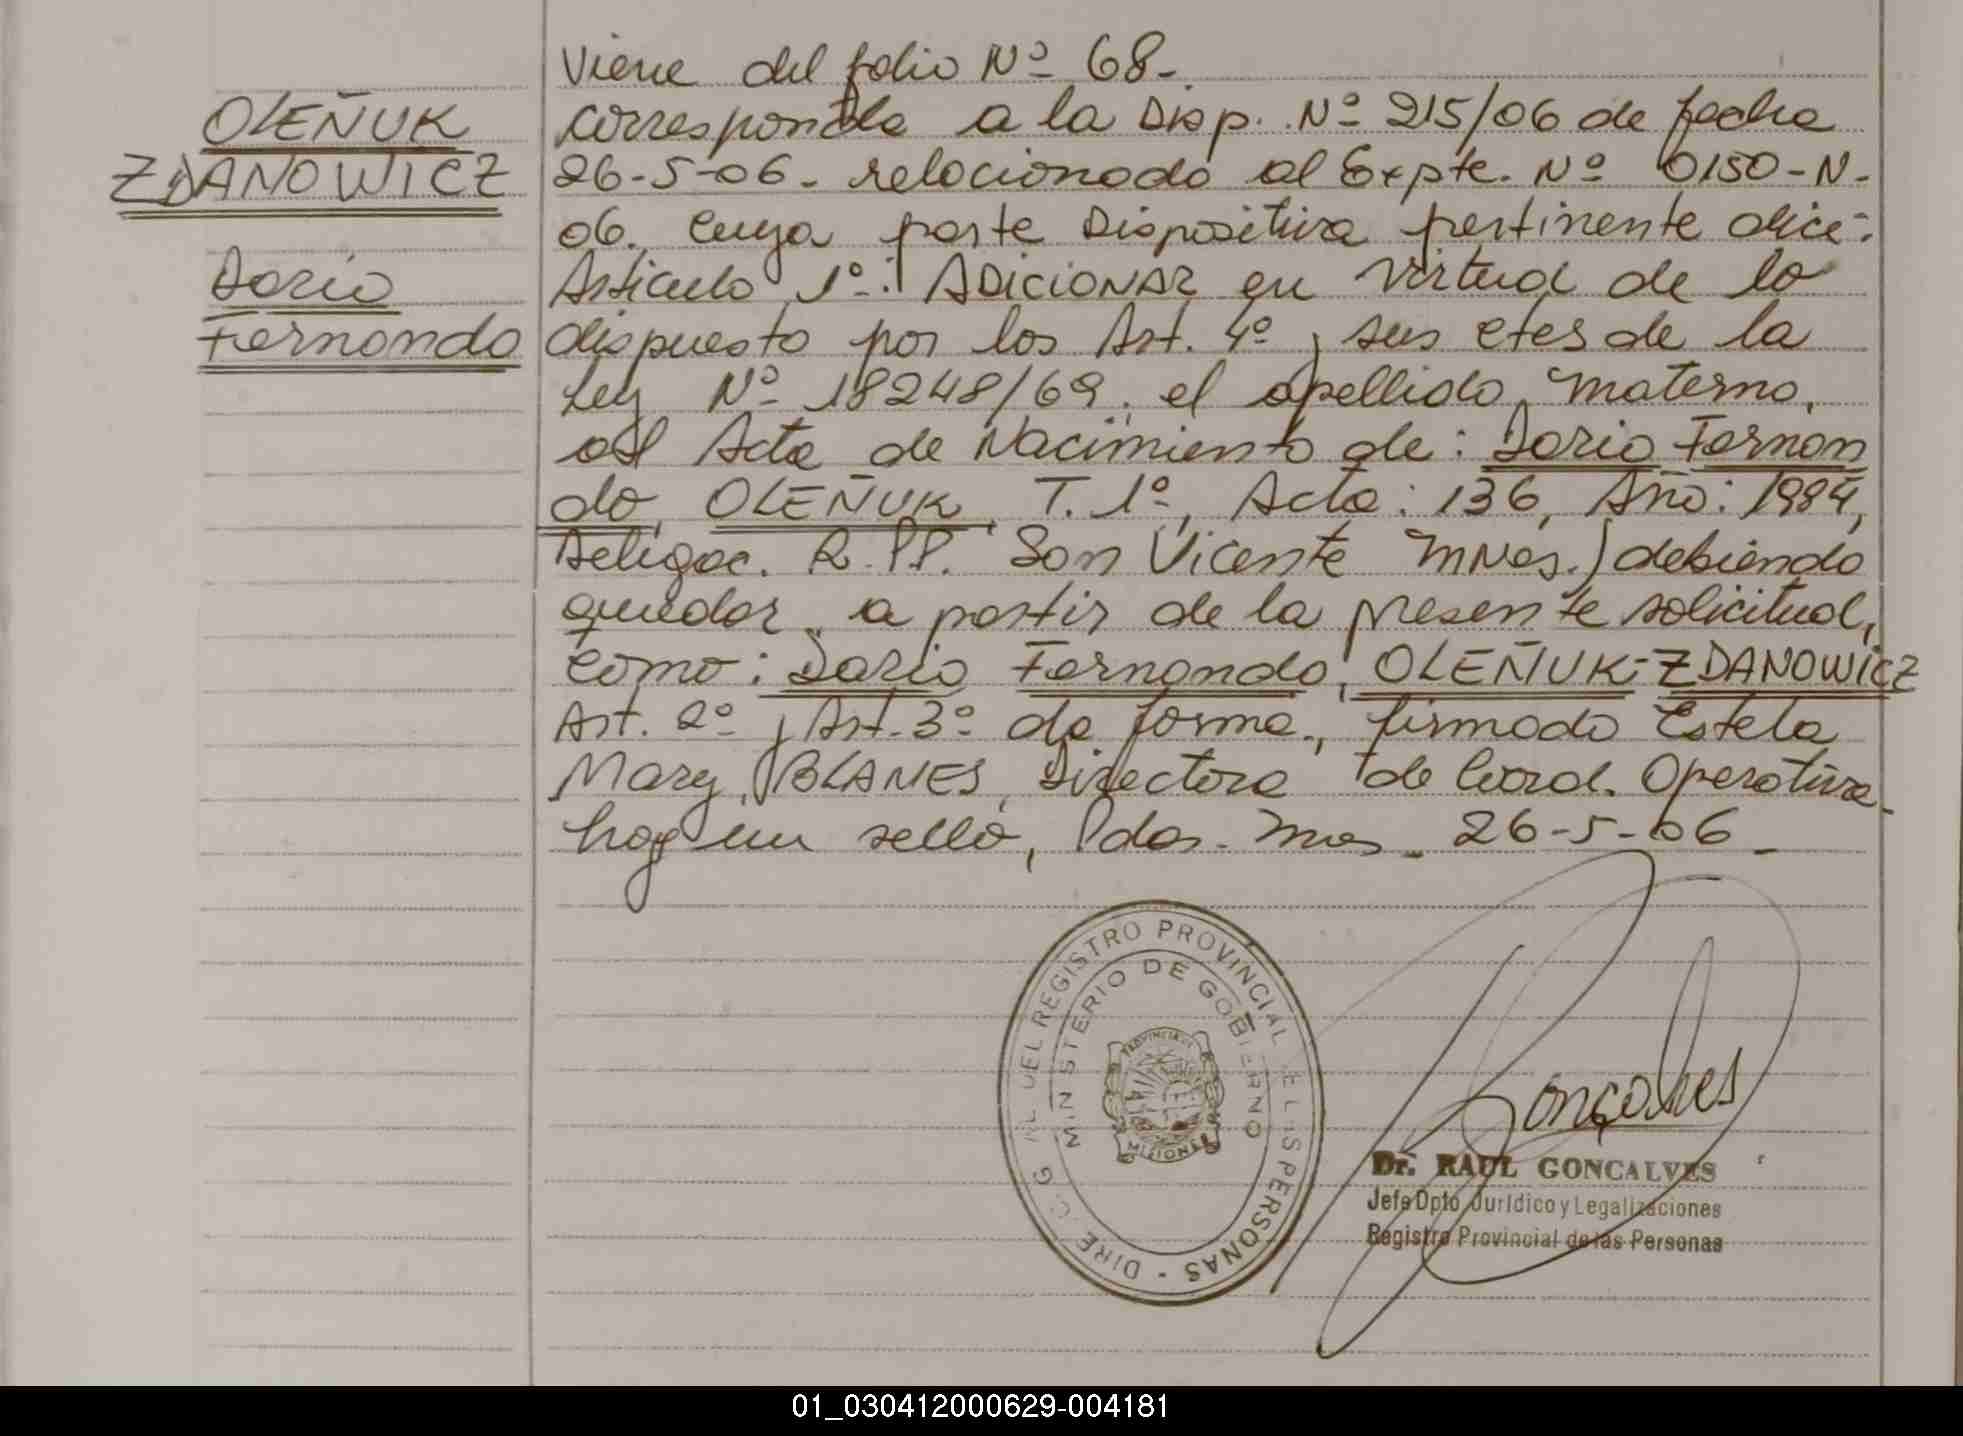 OLEÑUK
ZDANOWICZ
Dario
Fernando
Viene del folio Nº 68-
Corresponde a la Disp. Nº 215/06 de fecha
26-5-06. relacionado al Expte. Nº 0150-N-
06. Cuya parte Dispositiva pertinente dice:
Articulo 1º: ADICIONAR en virtud de lo
dispuesto por los Art. 4º y sus ctes de la
Ley Nº 18248/69, el apellido materno,
al Acta de Nacimiento de: Dario Fernan
do, OLEÑUK, T. 1º, Acta: 136, Año: 1984,
Delegac. R.PP. San Vicente Mnes.) debiendo
quedar, a partir de la presente solicitud,
como: Dario Fernando, OLEÑUK-ZDANOWICZ
Art. 2º y Art. 3º de forma., firmado Estela
Mary, BLANES, Directora de Coord. Operativa.
hay un sello, Pdas. Mnes. 26-5-06-
DIREC. G RAL DEL REGISTRO PROVINCIAL DE LAS PERSONAS -
MINISTERIO DE GOBIERNO
PROVINCIA DE
MISIONES
Gonçalves
Dr. RAUL GONCALVES
Jefe Dpto Jurídico y Legalizaciones
Registro Provincial de las Personas
01_030412000629-004181